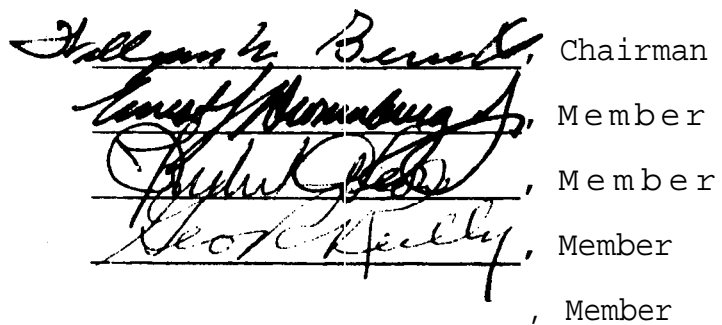 William M. Bennett, Chairman
Ernest J. Dronenburg Jr., Member
, Member
Geo R Reilly, Member
, Member